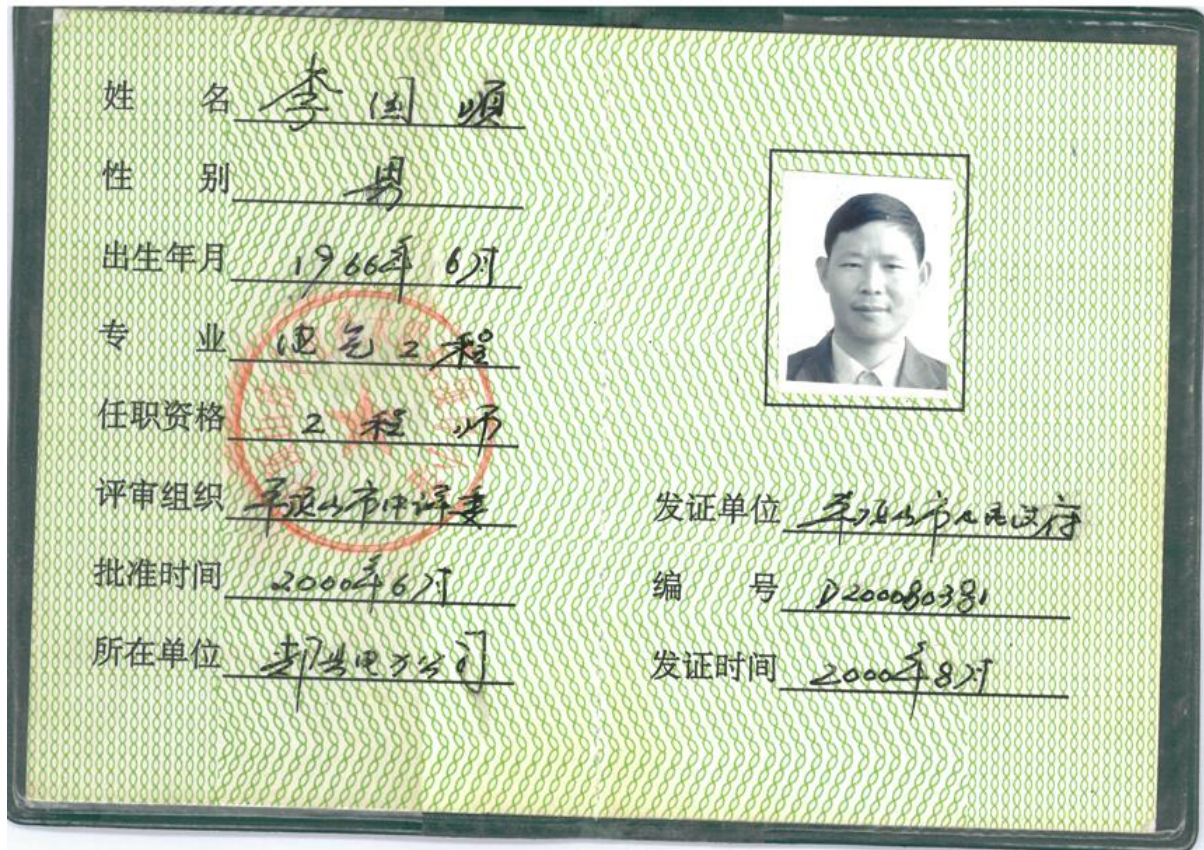 姓 名 李国顺
性 别 男
出生年月 1966年6月
专 业 电气工程
任职资格 工程师
评审组织 平顶山市中评委
批准时间 2000年6月
所在单位 郏县电力公司
发证单位 平顶山市人民政府
编 号 D200080381
发证时间 2000年8月